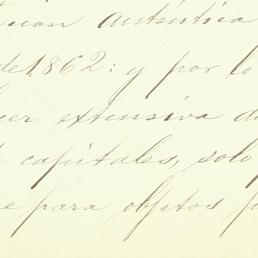 cion auténtica
de 1862: y por lo
cer extensiva a
capitales, solo
e para objetos p